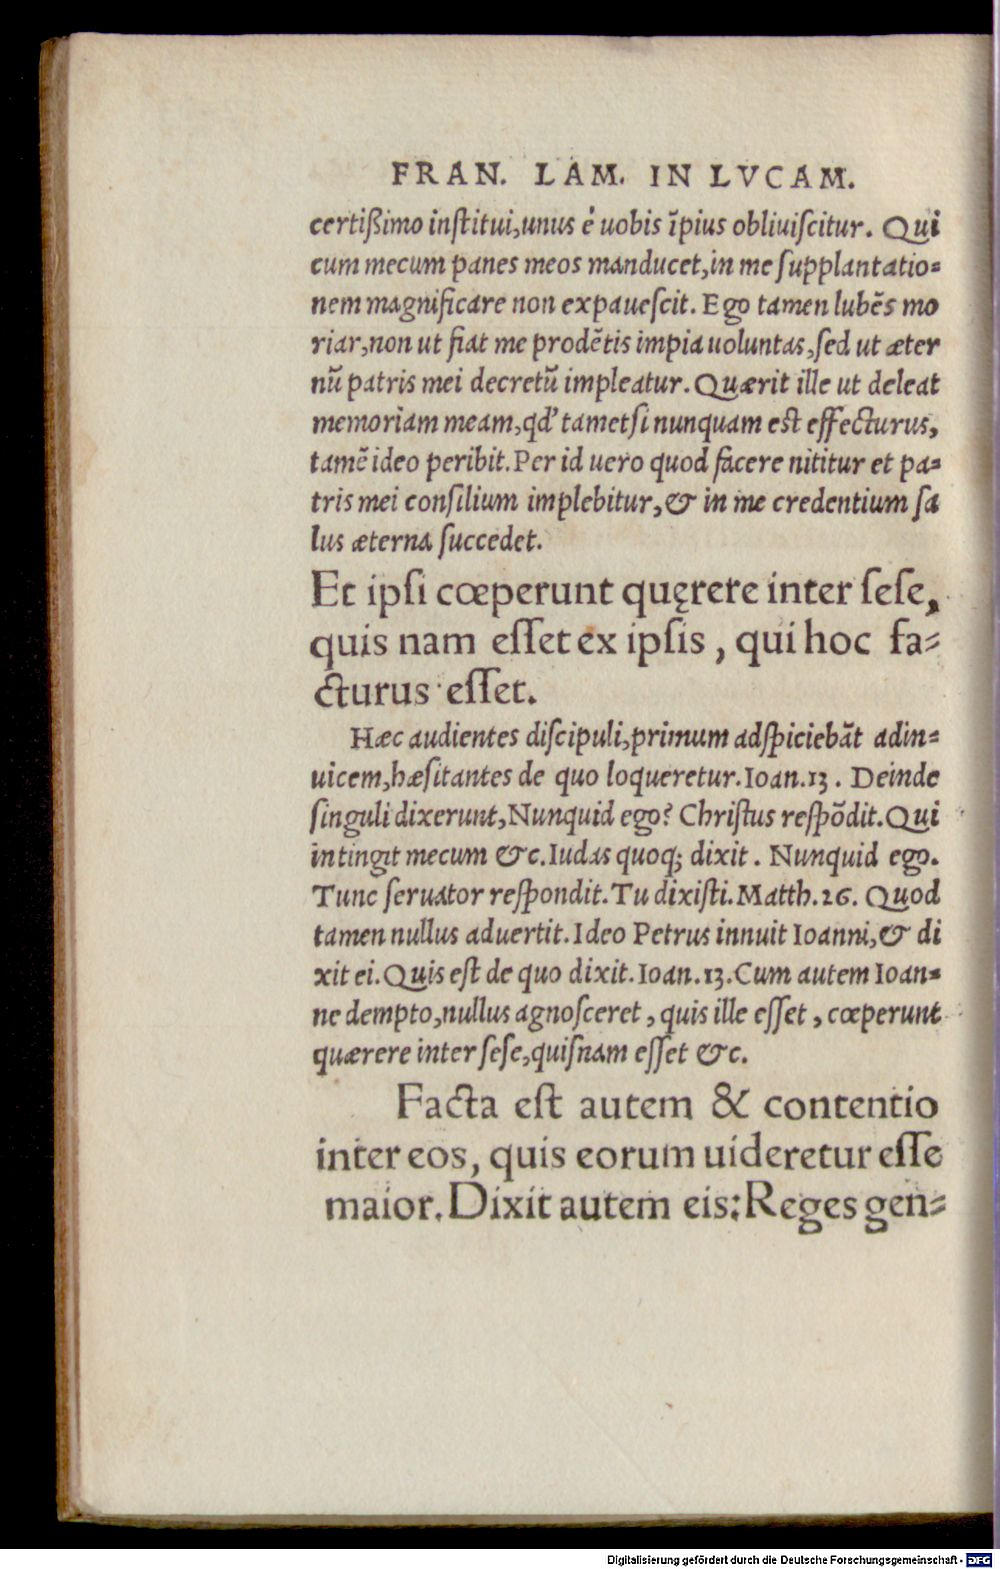 FRAN. LAM. IN LVCAM.
certißimo institui,unus è uobis īpius obliuiscitur. Qui
cum mecum panes meos manducet,in me supplantatio=
nem magnificare non expauescit. Ego tamen lubēs mo
riar,non ut fiat me prodētis impia uoluntas,sed ut æter
nū patris mei decretū impleatur. Quærit ille ut deleat
memoriam meam,qd' tametsi nunquam est effecturus,
tamē ideo peribit. Per id uero quod facere nititur et pa=
tris mei consilium implebitur,& in me credentium sa
lus æterna succedet.
Et ipsi cœperunt quęrere inter sese,
quis nam esset ex ipsis, qui hoc fa=
cturus esset.
Hæc audientes discipuli,primum adspiciebāt adin=
uicem,hæsitantes de quo loqueretur. Ioan.13. Deinde
singuli dixerunt,Nunquid ego? Christus respōdit. Qui
intingit mecum &c. Iudas quoq; dixit. Nunquid ego.
Tunc seruator respondit. Tu dixisti. Matth.26. Quod
tamen nullus aduertit. Ideo Petrus innuit Ioanni,& di
xit ei. Quis est de quo dixit. Ioan.13. Cum autem Ioan=
ne dempto,nullus agnosceret, quis ille esset, cœperunt
quærere inter sese,quisnam esset &c.
Facta est autem & contentio
inter eos, quis eorum uideretur esse
maior. Dixit autem eis: Reges gen=
Digitalisierung gefördert durch die Deutsche Forschungsgemeinschaft - DFG